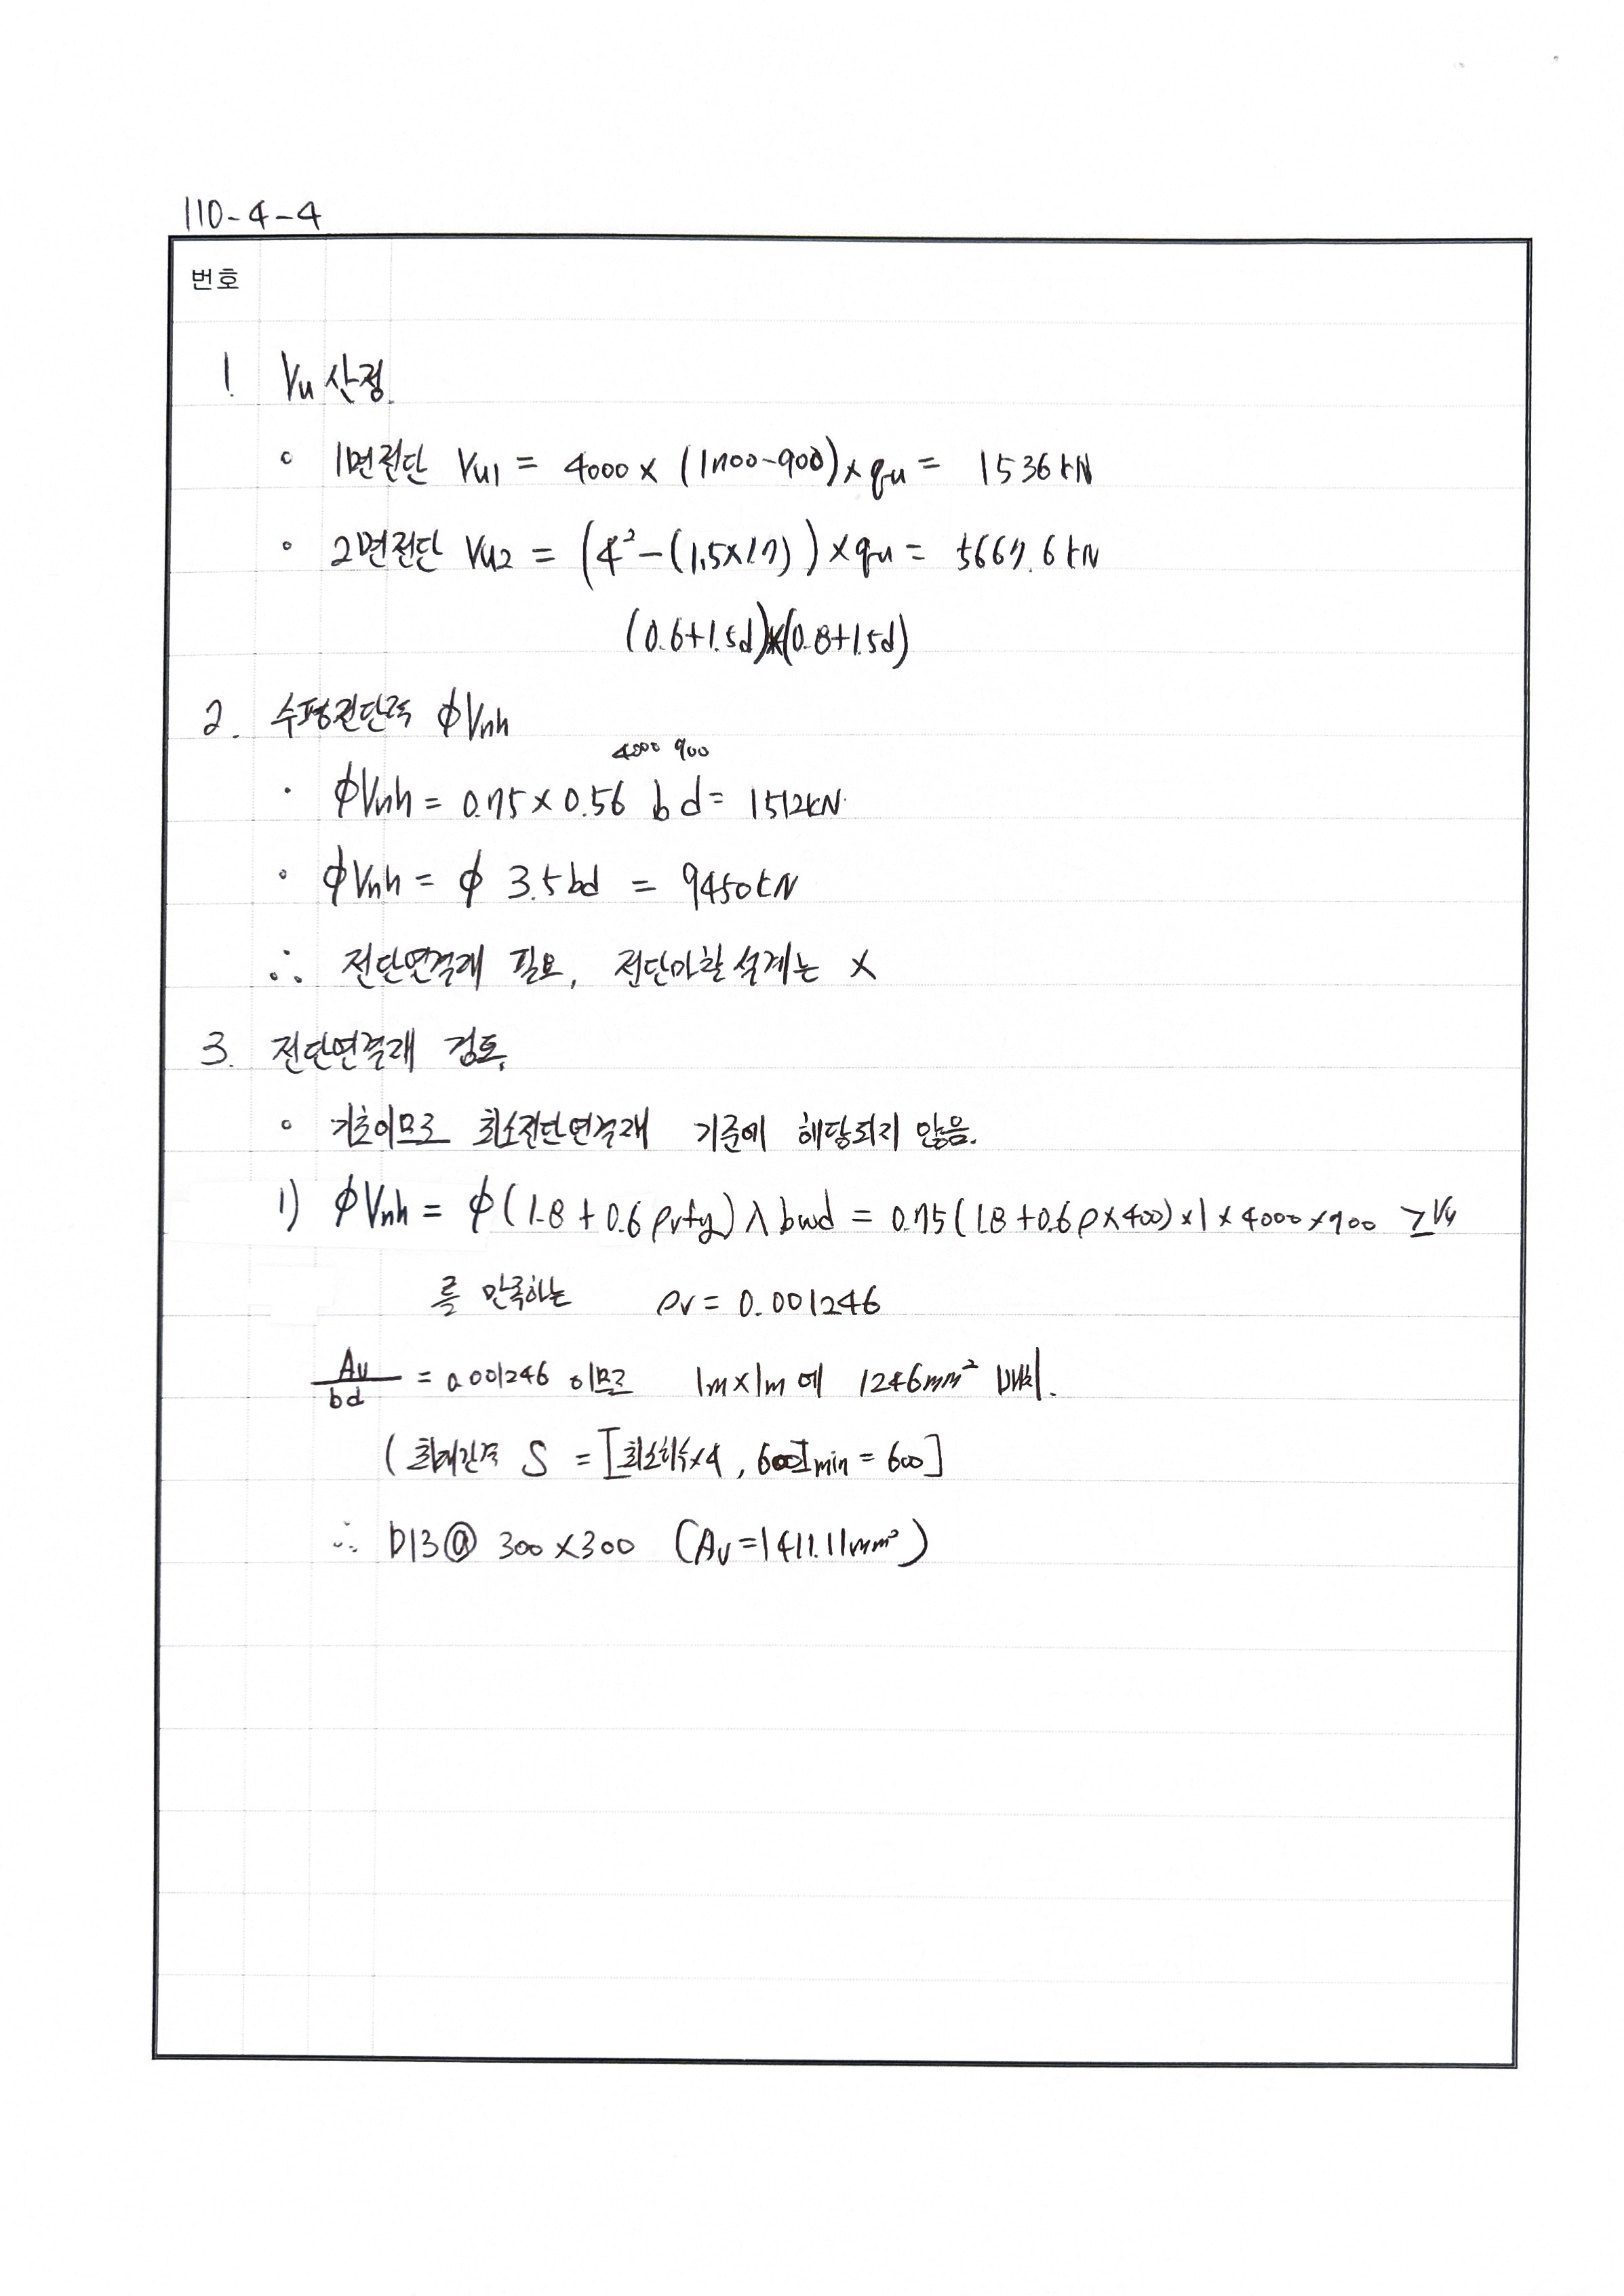 110-4-4
번호
1 Vu 산정.
◦ 1면전단 Vu1 = 4000 × (1700-900) × qu = 1536 kN
◦ 2면전단 Vu2 = (4² - (1.5×1.7)) × qu = 5667.6 kN
(0.6+1.5d)×(0.8+1.5d)
2. 수평전단력 ϕVnh
4000 900
· ϕVnh = 0.75 × 0.56 b d = 1512kN
◦ ϕVnh = ϕ 3.5bd = 9450kN
∴ 전단연결재 필요, 전단마찰설계는 X
3. 전단연결재 검토.
◦ 기초이므로 최소전단연결재 기준에 해당되지 않음.
1) ϕVnh = ϕ(1.8 + 0.6 ρvfy) λ bwd = 0.75(1.8 + 0.6ρ×400)×1×4000×900 ≥ Vu
를 만족하는 ρv = 0.001246
Av/bd = 0.001246 이므로 1m×1m 에 1246mm² 배치.
(최대간격 S = [최소치수×4, 600]min = 600]
∴ D13@ 300×300 (Av=1411.11mm²)